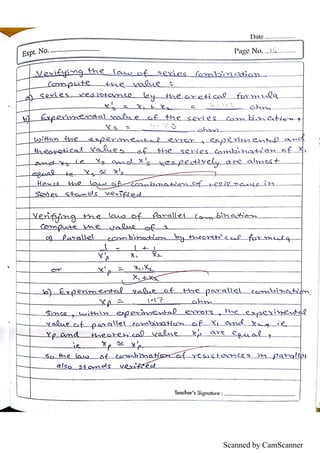 Date
Expt. No.
Page No. 15
Verifying the law of series combination
Compute the value :
a) Series resistance by theoretical formula
x's = x1 + x2 = ohm
b) Experimental value of the series combination,
xs = ohm.
within the experimental error, experimental and
theoretical values of the series combination of x1
and x2 ie xs and x's respectively are almost
equal ie. xs ≈ x's
Hence the law of combination of resistance in
Series stands verified
Verifying the law of Parallel combination
Compute the value of :
a) Parallel combination by theoretical formula
1/x'p = 1/x1 + 1/x2
or x'p = x1.x2 / x1+x2
b) Experimental value of the parallel combination
xp = 1.17 ohm
Since, within experimental errors, the experimental
value of parallel combination of x1 and x2, ie
xp and theoretical value x'p are equal,
ie xp ≈ x'p.
So the law of combination of resistances in parallel
also stands verified
Teacher's Signature :
Scanned by CamScanner